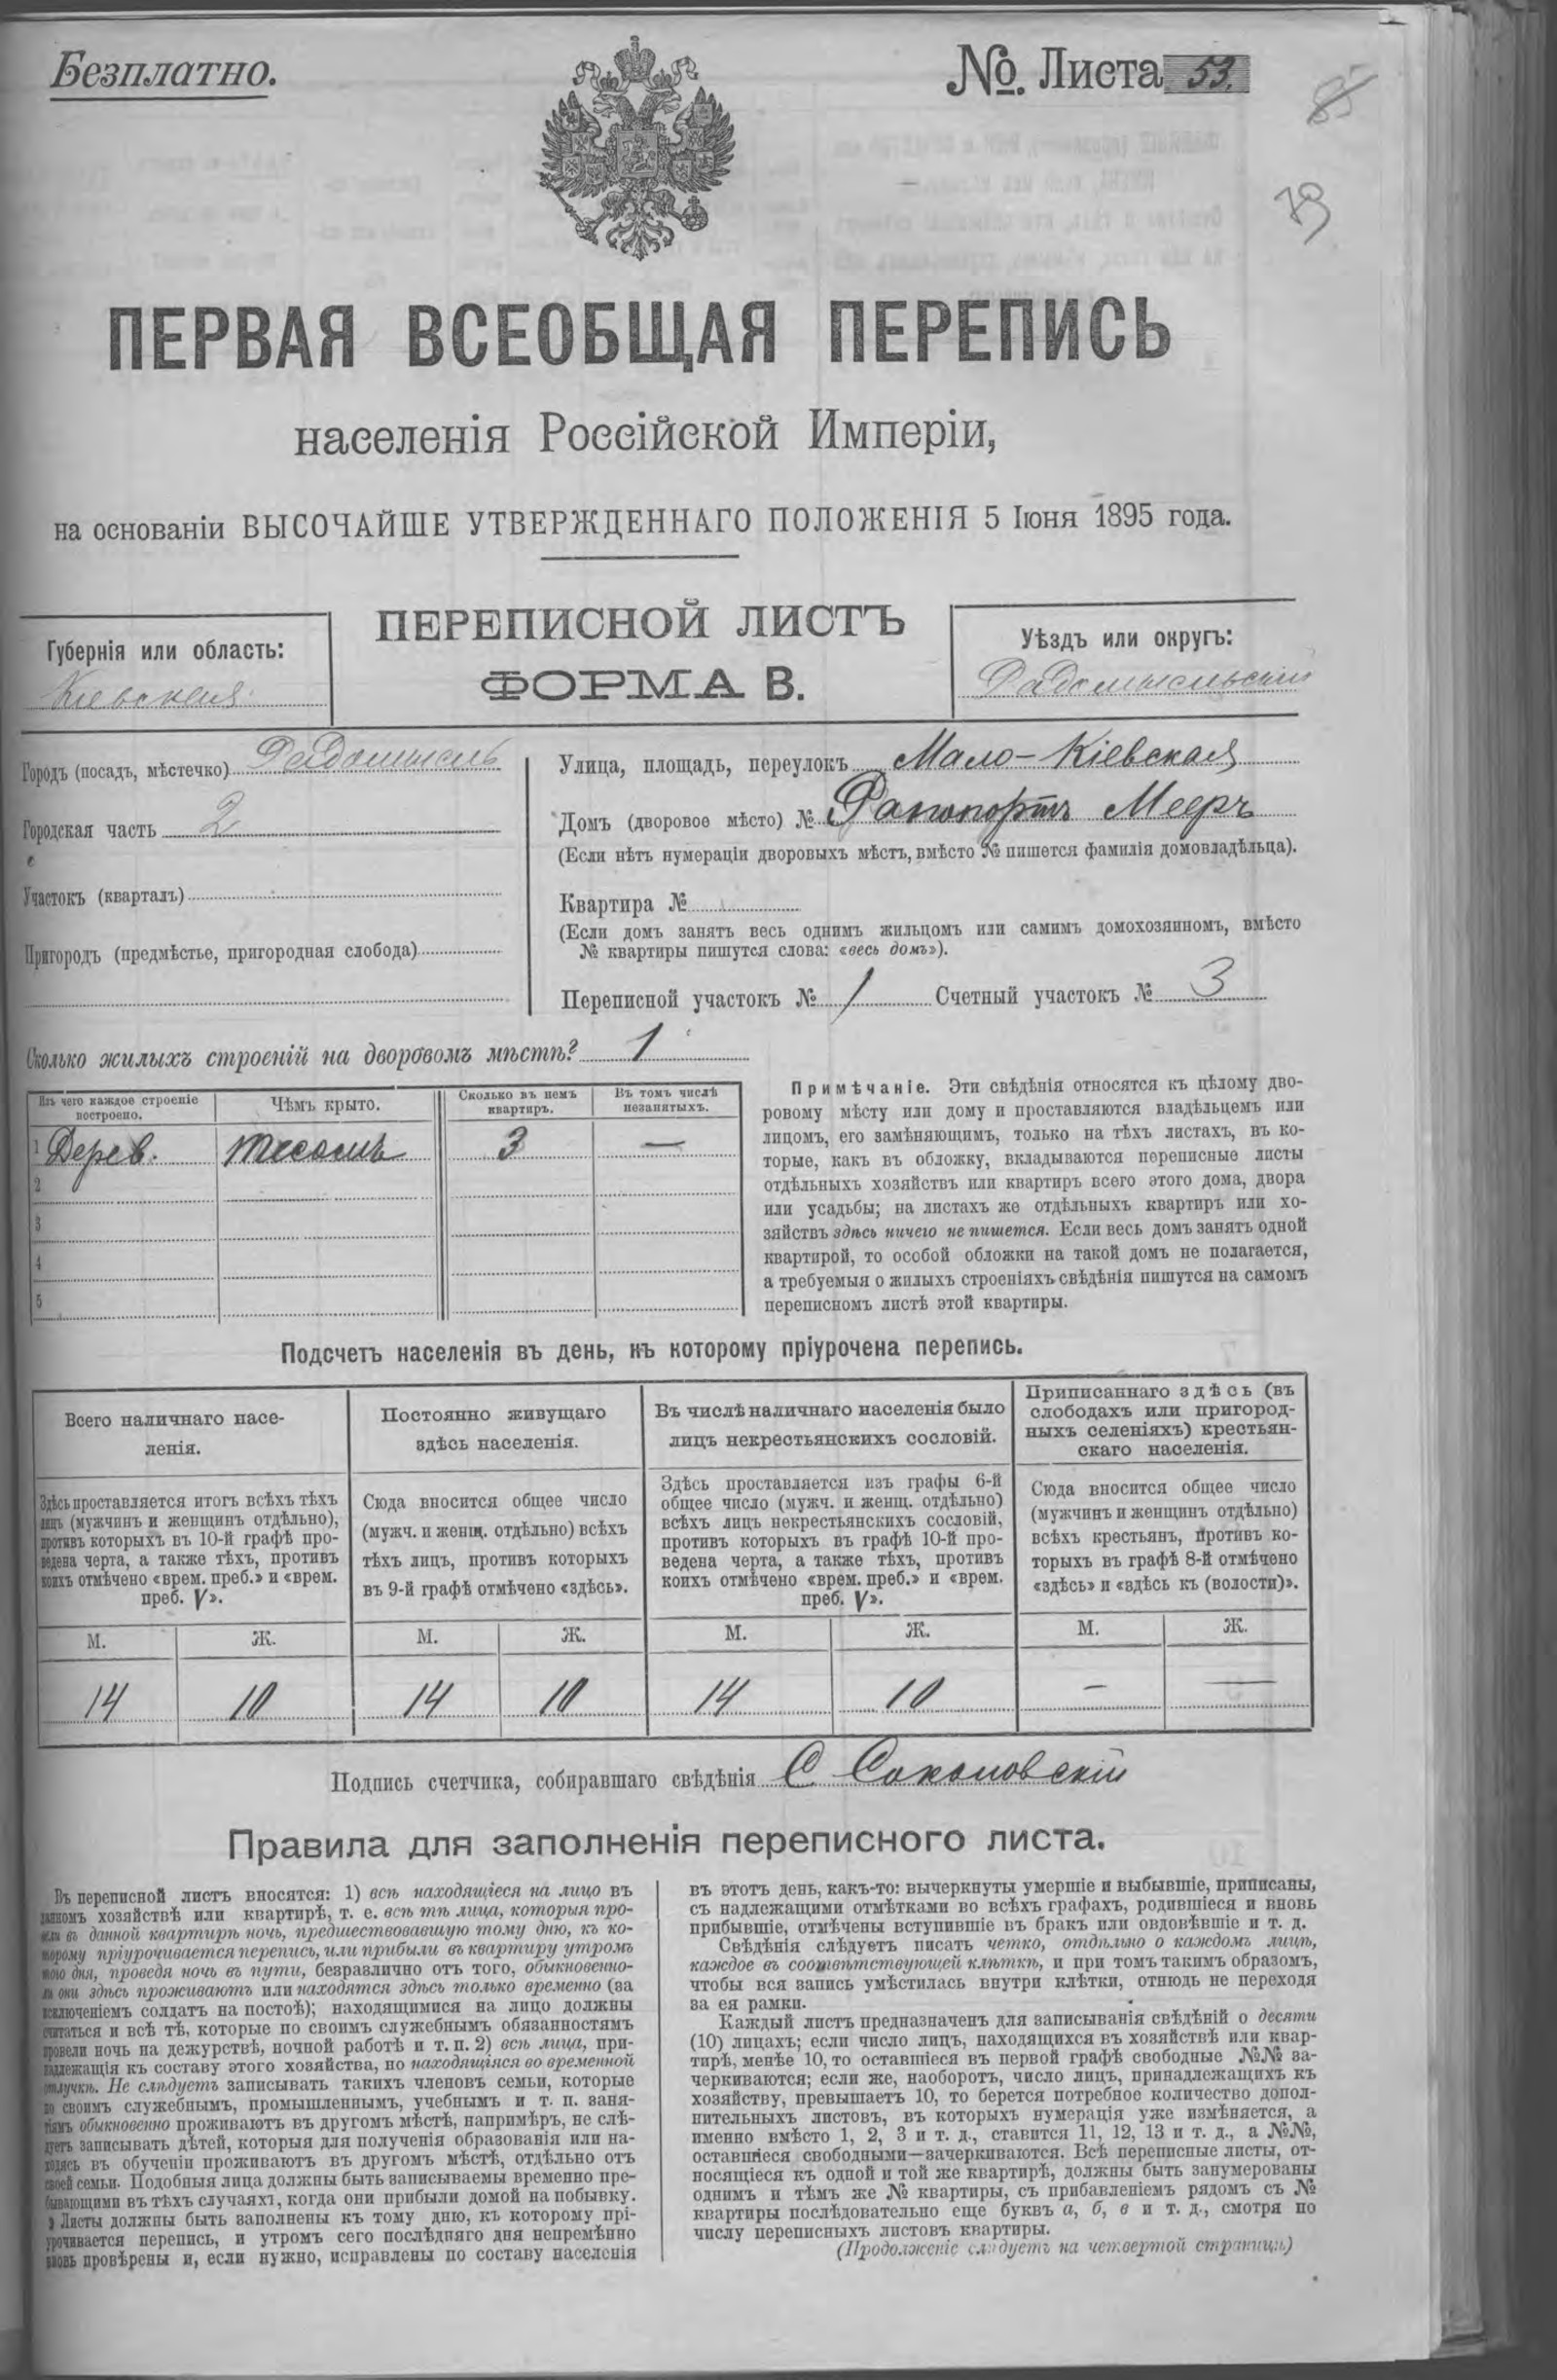 Безплатно.
№. Листа 53.
85
79
ПЕРВАЯ ВСЕОБЩАЯ ПЕРЕПИСЬ
населенія Россійской Имперіи,
на основаніи ВЫСОЧАЙШЕ УТВЕРЖДЕННАГО ПОЛОЖЕНІЯ 5 Іюня 1895 года.
ПЕРЕПИСНОЙ ЛИСТЪ
ФОРМА В.
Губернія или область:
Кіевская
Уѣздъ или округъ:
Радомысльскій
Городъ (посадъ, мѣстечко) Радомысль
Городская часть 2
Участокъ (кварталъ)
Пригородъ (предмѣстье, пригородная слобода)
Улица, площадь, переулокъ Мало-Кіевская
Домъ (дворовое мѣсто) № Рапопортъ Мееръ
(Если нѣтъ нумераціи дворовыхъ мѣстъ, вмѣсто № пишется фамилія домовладѣльца).
Квартира №
(Если домъ занятъ весь однимъ жильцомъ или самимъ домохозяиномъ, вмѣсто
№ квартиры пишутся слова: «весь домъ»).
Переписной участокъ № 1 Счетный участокъ № 3
Сколько жилыхъ строеній на дворовомъ мѣстѣ? 1
Изъ чего каждое строеніе
построено.
Чѣмъ крыто.
Сколько въ немъ
квартиръ.
Въ томъ числѣ
незанятыхъ.
1 Дерев. тесомъ 3 —
2
3
4
5
Примѣчаніе. Эти свѣдѣнія относятся къ цѣлому дво-
ровому мѣсту или дому и проставляются владѣльцемъ или
лицомъ, его замѣняющимъ, только на тѣхъ листахъ, въ ко-
торые, какъ въ обложку, вкладываются переписные листы
отдѣльныхъ хозяйствъ или квартиръ всего этого дома, двора
или усадьбы; на листахъ же отдѣльныхъ квартиръ или хо-
зяйствъ здѣсь ничего не пишется. Если весь домъ занятъ одной
квартирой, то особой обложки на такой домъ не полагается,
а требуемыя о жилыхъ строеніяхъ свѣдѣнія пишутся на самомъ
переписномъ листѣ этой квартиры.
Подсчетъ населенія въ день, къ которому пріурочена перепись.
Всего наличнаго насе-
ленія.
Здѣсь проставляется итогъ всѣхъ тѣхъ
лицъ (мужчинъ и женщинъ отдѣльно),
противъ которыхъ въ 10-й графѣ про-
ведена черта, а также тѣхъ, противъ
коихъ отмѣчено «врем. преб.» и «врем.
преб. V».
Постоянно живущаго
здѣсь населенія.
Сюда вносится общее число
(мужч. и женщ. отдѣльно) всѣхъ
тѣхъ лицъ, противъ которыхъ
въ 9-й графѣ отмѣчено «здѣсь».
Въ числѣ наличнаго населенія было
лицъ некрестьянскихъ сословій.
Здѣсь проставляется изъ графы 6-й
общее число (мужч. и женщ. отдѣльно)
всѣхъ лицъ некрестьянскихъ сословій,
противъ которыхъ въ графѣ 10-й про-
ведена черта, а также тѣхъ, противъ
коихъ отмѣчено «врем. преб.» и «врем.
преб. V».
Приписаннаго здѣсь (въ
слободахъ или пригород-
ныхъ селеніяхъ) крестьян-
скаго населенія.
Сюда вносится общее число
(мужчинъ и женщинъ отдѣльно)
всѣхъ крестьянъ, противъ ко-
торыхъ въ графѣ 8-й отмѣчено
«здѣсь» и «здѣсь къ (волости)».
М. Ж. М. Ж. М. Ж. М. Ж.
14 10 14 10 14 10 — —
Подпись счетчика, собиравшаго свѣдѣнія С Соколовскій
Правила для заполненія переписного листа.
Въ переписной листъ вносятся: 1) всѣ находящіеся на лицо въ
данномъ хозяйствѣ или квартирѣ, т. е. всѣ тѣ лица, которыя про-
вели въ данной квартирѣ ночь, предшествовавшую тому дню, къ ко-
торому пріурочивается перепись, или прибыли въ квартиру утромъ
того дня, проведя ночь въ пути, безразлично отъ того, обыкновенно-
ли они здѣсь проживаютъ или находятся здѣсь только временно (за
исключеніемъ солдатъ на постоѣ); находящимися на лицо должны
считаться и всѣ тѣ, которые по своимъ служебнымъ обязанностямъ
провели ночь на дежурствѣ, ночной работѣ и т. п. 2) всѣ лица, при-
надлежащія къ составу этого хозяйства, но находящіяся во временной
отлучкѣ. Не слѣдуетъ записывать такихъ членовъ семьи, которые
по своимъ служебнымъ, промышленнымъ, учебнымъ и т. п. заня-
тіямъ обыкновенно проживаютъ въ другомъ мѣстѣ, напримѣръ, не слѣ-
дуетъ записывать дѣтей, которыя для полученія образованія или на-
ходясь въ обученіи проживаютъ въ другомъ мѣстѣ, отдѣльно отъ
своей семьи. Подобныя лица должны быть записываемы временно пре-
бывающими въ тѣхъ случаяхъ, когда они прибыли домой на побывку.
Листы должны быть заполнены къ тому дню, къ которому прі-
урочивается перепись, и утромъ сего послѣдняго дня непремѣнно
вновь провѣрены и, если нужно, исправлены по составу населенія
въ этотъ день, какъ-то: вычеркнуты умершіе и выбывшіе, приписаны,
съ надлежащими отмѣтками во всѣхъ графахъ, родившіеся и вновь
прибывшіе, отмѣчены вступившіе въ бракъ или овдовѣвшіе и т. д.
Свѣдѣнія слѣдуетъ писать четко, отдѣльно о каждомъ лицѣ,
каждое въ соотвѣтствующей клѣткѣ, и при томъ такимъ образомъ,
чтобы вся запись умѣстилась внутри клѣтки, отнюдь не переходя
за ея рамки.
Каждый листъ предназначенъ для записыванія свѣдѣній о десяти
(10) лицахъ; если число лицъ, находящихся въ хозяйствѣ или квар-
тирѣ, менѣе 10, то оставшіеся въ первой графѣ свободные №№ за-
черкиваются; если же, наоборотъ, число лицъ, принадлежащихъ къ
хозяйству, превышаетъ 10, то берется потребное количество допол-
нительныхъ листовъ, въ которыхъ нумерація уже измѣняется, а
именно вмѣсто 1, 2, 3 и т. д., ставится 11, 12, 13 и т. д., а №№,
оставшіеся свободными—зачеркиваются. Всѣ переписные листы, от-
носящіеся къ одной и той же квартирѣ, должны быть занумерованы
однимъ и тѣмъ же № квартиры, съ прибавленіемъ рядомъ съ №
квартиры послѣдовательно еще буквъ а, б, в и т. д., смотря по
числу переписныхъ листовъ квартиры.
(Продолженіе слѣдуетъ на четвертой страницѣ)